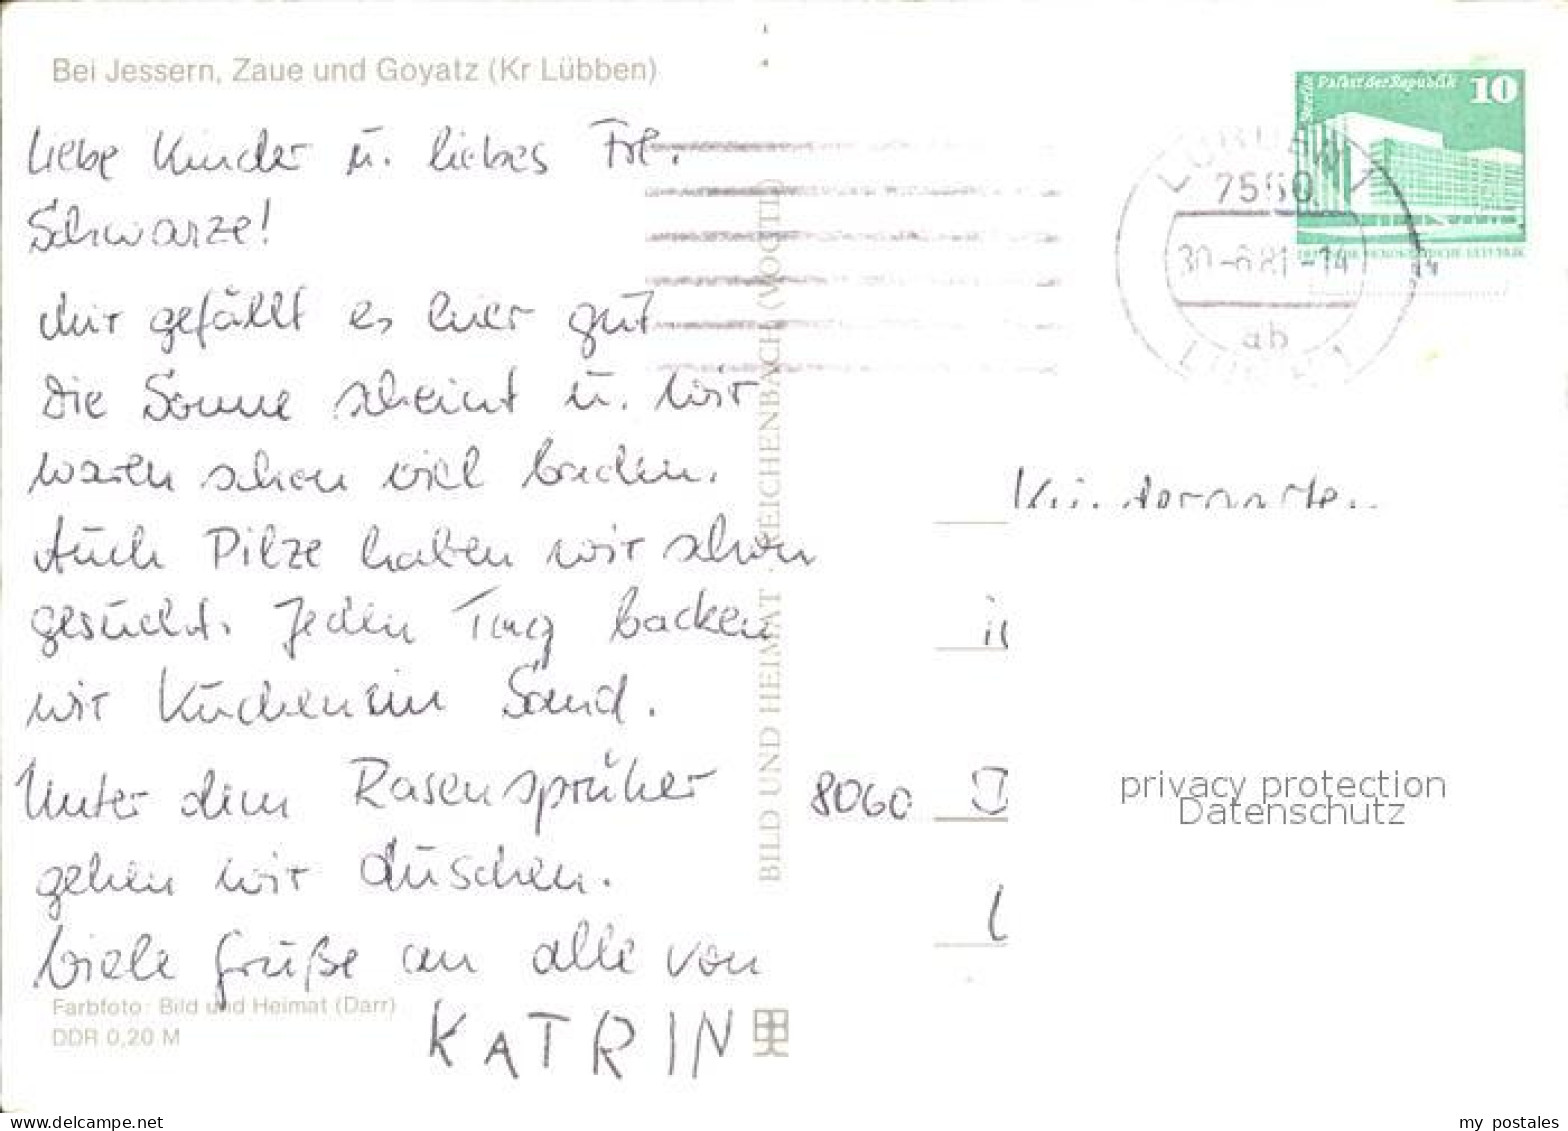 Bei Jessern, Zaue und Goyatz (Kr Lübben)
Liebe Kinder u. liebes Frl.
Schwarze!
Mir gefällt es hier gut.
Die Sonne scheint u. wir
waren schon viel baden.
Auch Pilze haben wir schon
gesucht. Jeden Tag backen
wir Kuchen im Sand.
Unter dem Rasensprüher
gehen wir duschen.
Viele Grüße an alle von
KATRIN
Farbfoto: Bild und Heimat (Darr)
DDR 0,20 M
BILD UND HEIMAT · REICHENBACH (VOGTL)
Berlin Palast der Republik 10
7550
ab
Kindergarten
8060
privacy protection
Datenschutz
my postales